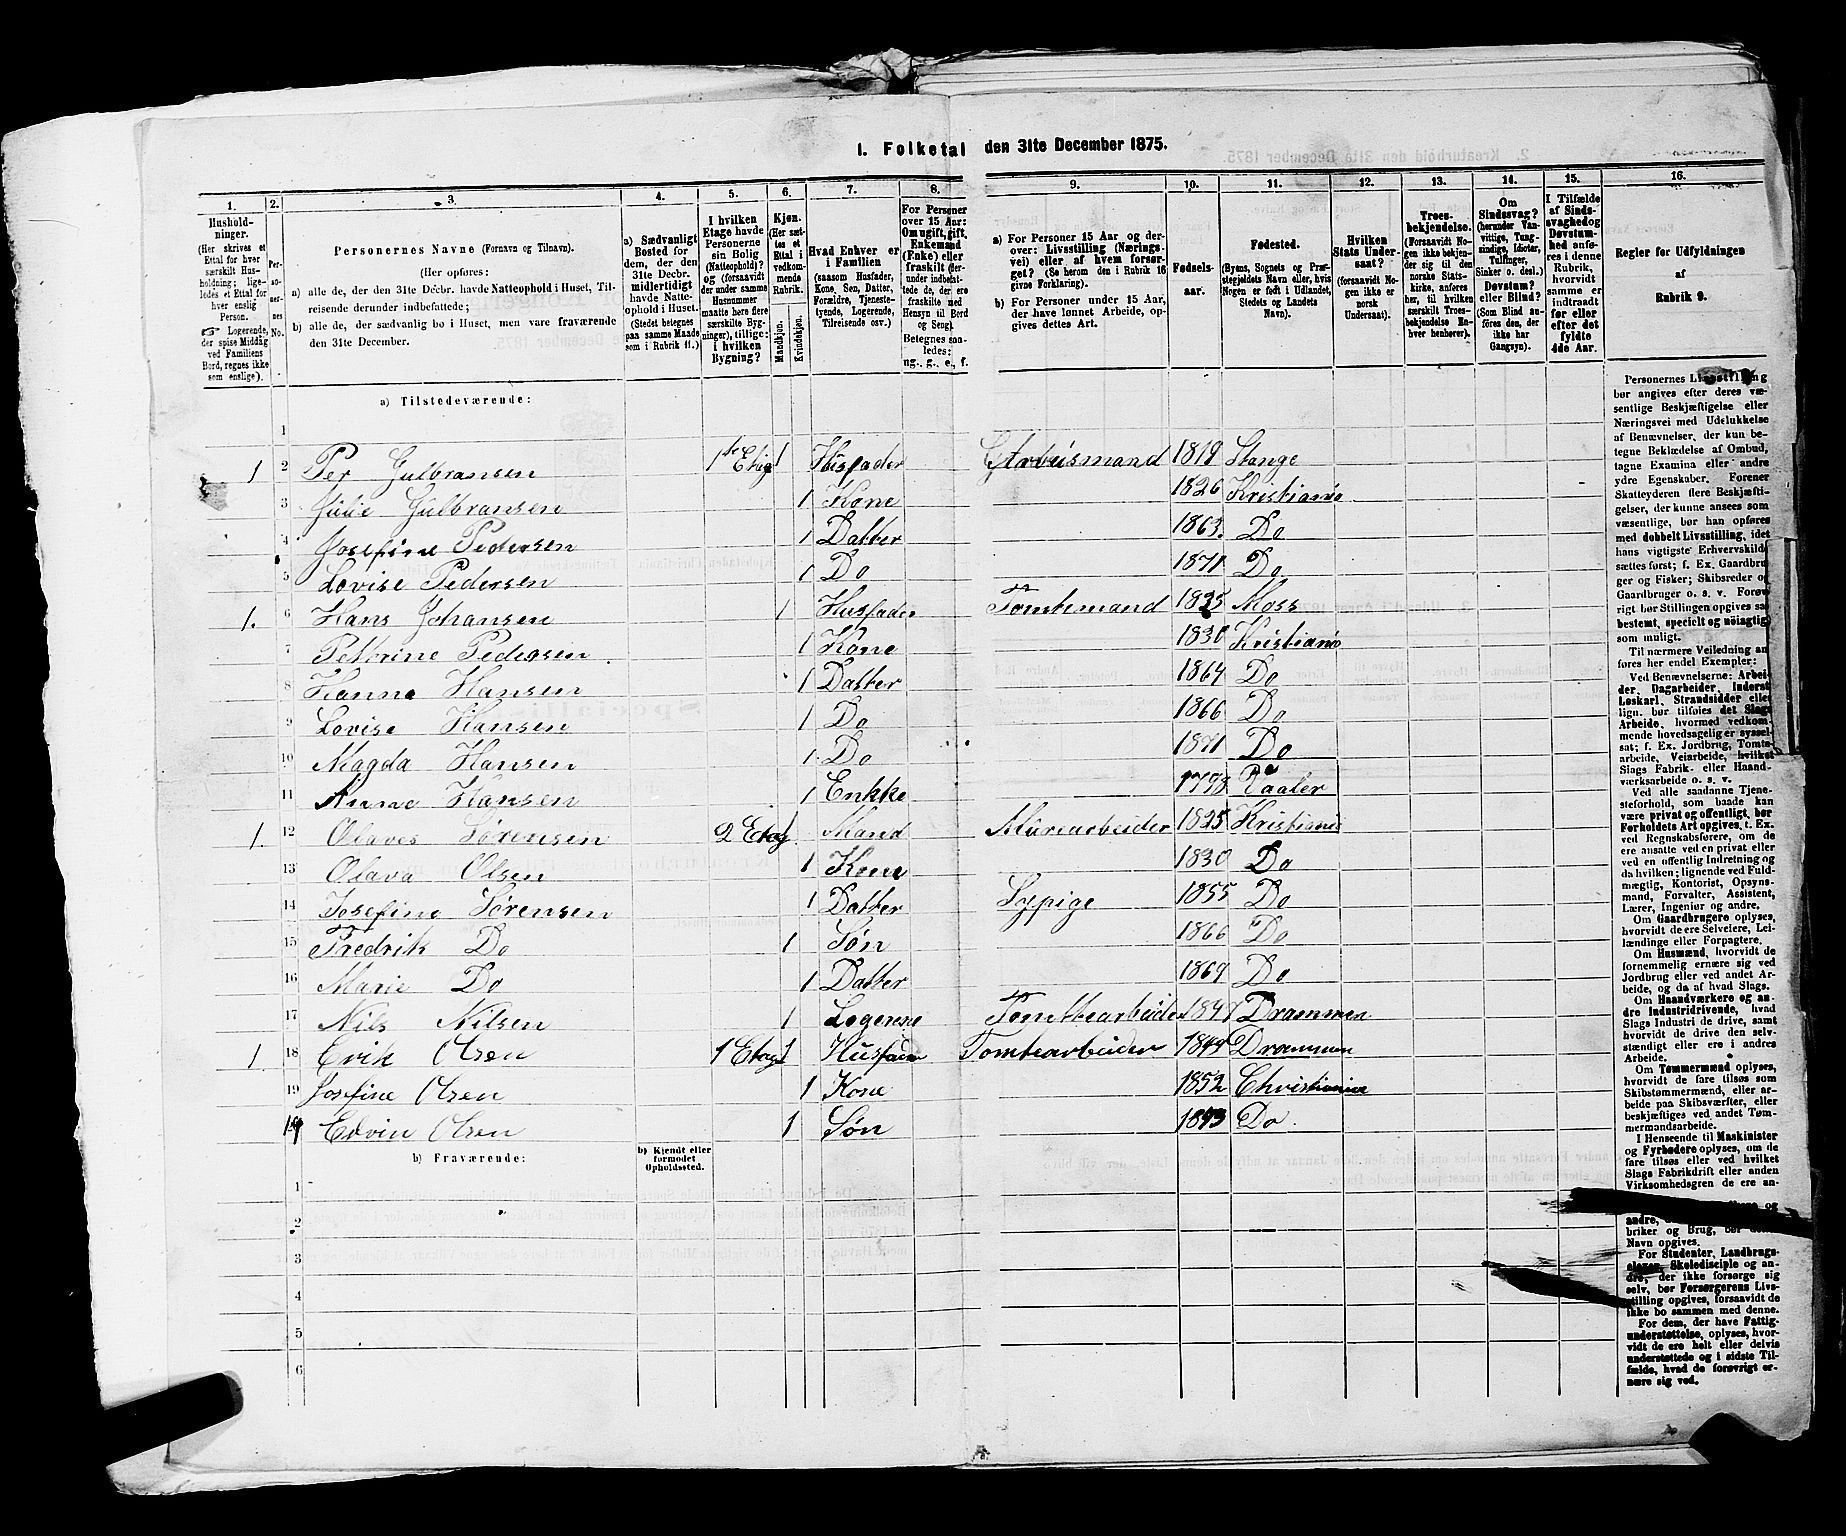 I. Folketal den 31te December 1875.
1. 2. 3. 4. 5. 6. 7. 8. 9. 10. 11. 12. 13. 14. 15. 16.
Husholdninger. (Her skrives et Ettal for hver særskilt Husholdning; ligeledes et Ettal for hver enslig Person. Logerende, der spise Middag ved Familiens Bord, regnes ikke som enslige).
Personernes No.
Personernes Navne (Fornavn og Tilnavn).
(Her opføres:
a) alle de, der den 31te Decbr. havde Natteophold i Huset, Tilreisende derunder indbefattede;
b) alle de, der sædvanlig bo i Huset, men vare fraværende den 31te December.
a) Sædvanligt Bosted for dem, der den 31te Decbr. midlertidigt havde Natteophold i Huset. (Stedet betegnes paa samme Maade som i Rubrik 11.)
I hvilken Etage havde Personerne sin Bolig (Natteophold)? (forsaavidt der under samme Husnummer maatte høre flere særskilte Bygninger), tillige: i hvilken Bygning?
Kjøn. (Her sættes et Ettal i vedkommende Rubrik.
Mandkjøn. Kvindekjøn.
Hvad Enhver er i Familien (saasom Husfader, Kone, Søn, Datter, Forældre, Tjenestetyende, Logerende, Tilreisende osv.)
For Personer over 15 Aar: Om ugift, gift, Enkemand (Enke) eller fraskilt (derunder indbefattede de, der ere fraskilte med Hensyn til Bord og Seng). Betegnes saaledes: ug., g., e., f.
a) For Personer 15 Aar og derover: Livsstilling (Næringsvei) eller af hvem forsørget? (Se herom den i Rubrik 16 givne Forklaring).
b) For Personer under 15 Aar, der have lønnet Arbeide, opgives dettes Art.
Fødselsaar.
Fødested. (Byens, Sognets og Præstegjeldets Navn eller, hvis Nogen er født i Udlandet, Stedets og Landets Navn).
Hvilken Stats Undersaat? (forsaavidt Nogen ikke er norsk Undersaat).
Troesbekjendelse. (Forsaavidt Nogen ikke bekjender sig til den norske Statskirke, anføres her, til hvilken særskilt Troesbekjendelse Enhver henhører).
Om Sindssvag? (herunder Vanvittige, Tungsindige, Idioter, Tullinger, Sinker o. desl.) Døvstum? eller Blind? (Som Blind anføres den, der ikke har Gangsyn).
I Tilfælde af Sindssvaghed og Døvstumhed anføres i denne Rubrik, hvorvidt samme er indtraadt før eller efter det fyldte 4de Aar.
Regler for Udfyldningen af Rubrik 9.
a) Tilstedeværende:
1
1 2 Per Gulbransen 1ste Etag 1 Husfader Arbeismand 1819 Stange
3 Julie Gulbransen 1 Kone 1826 Kristiania
4 Josefine Pedersen 1 Datter 1863 Do
5 Lovise Pedersen 1 Do 1871 Do
1. 6 Hans Johansen 1 Husfader Tomtemand 1825 Moss
7 Pettrine Pedersen 1 Kone 1830 Kristiania
8 Hanna Hansen 1 Datter 1864 Do
9 Lovise Hansen 1 Do 1866 Do
10 Magda Hansen 1 Do 1871 Do
11 Anne Hansen 1 Enkke 1798 Vaaler
1. 12 Olaves Sørensen 2 Etag 1 Mand Murearbeider 1825 Kristiania
13 Olava Olsen 1 Kone 1830 Do
14 Josefine Sørensen 1 Datter Sypige 1855 Do
15 Fredrik Do 1 Søn 1866 Do
16 Marie Do 1 Datter 1869 Do
17 Nils Nilsen 1 Logerene Tomttearbeider Drammen
1 18 Erik Olsen 1 Etag 1 Husfader Tomtearbeider 1849 Drammen
19 Josefine Olsen 1 Kone 1852 Christiania
Edvin Olsen 1 Søn 1873 Do
b) Fraværende: b) Kjendt eller formodet Opholdssted.
1
2
3
4
5
6
Personernes Livsstilling
bør angives efter deres væsentlige
Beskjæftigelse eller
Næringsvei med Udelukkelse
af Benævnelser, der kun betegne
Beklædelse af Ombud,
tagne Examina eller andre
ydre Egenskaber. Forener
Skatteyderen flere Beskjæftigelser,
der kunne ansees som
væsentlige, bør han opføres
med dobbelt Livsstilling, idet
hans vigtigste Erhvervskilde
sættes først; f. Ex. Gaardbruger
og Fisker; Skibsreder og
Gaardbruger o. s. v. Forøvrigt
bør Stillingen opgives saa
bestemt, specielt og nøiagtig
som muligt.
Til nærmere Veiledning anføres
her endel Exempler:
Ved Benævnelserne: Arbeider,
Dagarbeider, Inderst,
Løskarl, Strandsidder eller
lign. bør tilføies det Slags
Arbeide, hvormed vedkommende
hovedsagelig er sysselsat;
f. Ex. Jordbrug, Tomtearbeide,
Veiarbeide, hvilket
Slags Fabrik- eller Haandværksarbeide
o. s. v.
Ved alle saadanne Tjenesteforhold,
som baade kan
være privat og offentligt, bør
Forholdets Art opgives, f. Ex.
ved Regnskabsførere, om de
ere ansatte ved en privat eller
ved en offentlig Indretning og
da hvilken; lignende ved Fuldmægtig,
Kontorist, Opsynsmand,
Forvalter, Assistent,
Lærer, Ingeniør og andre.
Om Gaardbrugere oplyses,
hvorvidt de ere Selveiere, Leilændinge
eller Forpagtere.
Om Husmænd, hvorvidt de
fornemmelig ernære sig ved
Jordbrug eller ved andet Arbeide,
og da af hvad Slags.
Om Haandværkere og andre
Industridrivende, hvad
Slags Industri de drive, samt
hvorvidt de drive den selvstændigt
eller ere i andres
Arbeide.
Om Tømmermænd oplyses,
hvorvidt de fare tilsøs som
Skibstømmermænd, eller arbeide
paa Skibsværfter, eller
beskjæftiges ved andet Tømmermandsarbeide.
I Henseende til Maskinister
og Fyrbødere oplyses, om de
fare tilsøs eller ved hvilket
Slags Fabrikdrift eller anden
Virksomhedsgren de ere an-
briker og Brug, bør
Navn opgives.
For Studenter, Landbrugs-
Skoledisciple og andre,
der ikke forsørge sig
selv, bør Forsørgerens Livsstilling
opgives, forsaavidt de
ikke bo sammen med denne.
For dem, der have Fattigunderstøttelse,
oplyses, hvorvidt
de ere helt eller delvis
understøttede og i sidste Tilfælde,
hvad de forøvrigt ernære
sig ved.